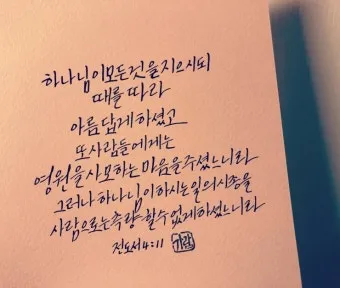 하나님이모든것을지으시되
때를 따라
아름답게하셨고
또사람들에게는
영원을사모하는마음을주셨느니라
그러나 하나님이하시는일의시종을
사람으로는측량할수없게하셨느니라
전도서4:11